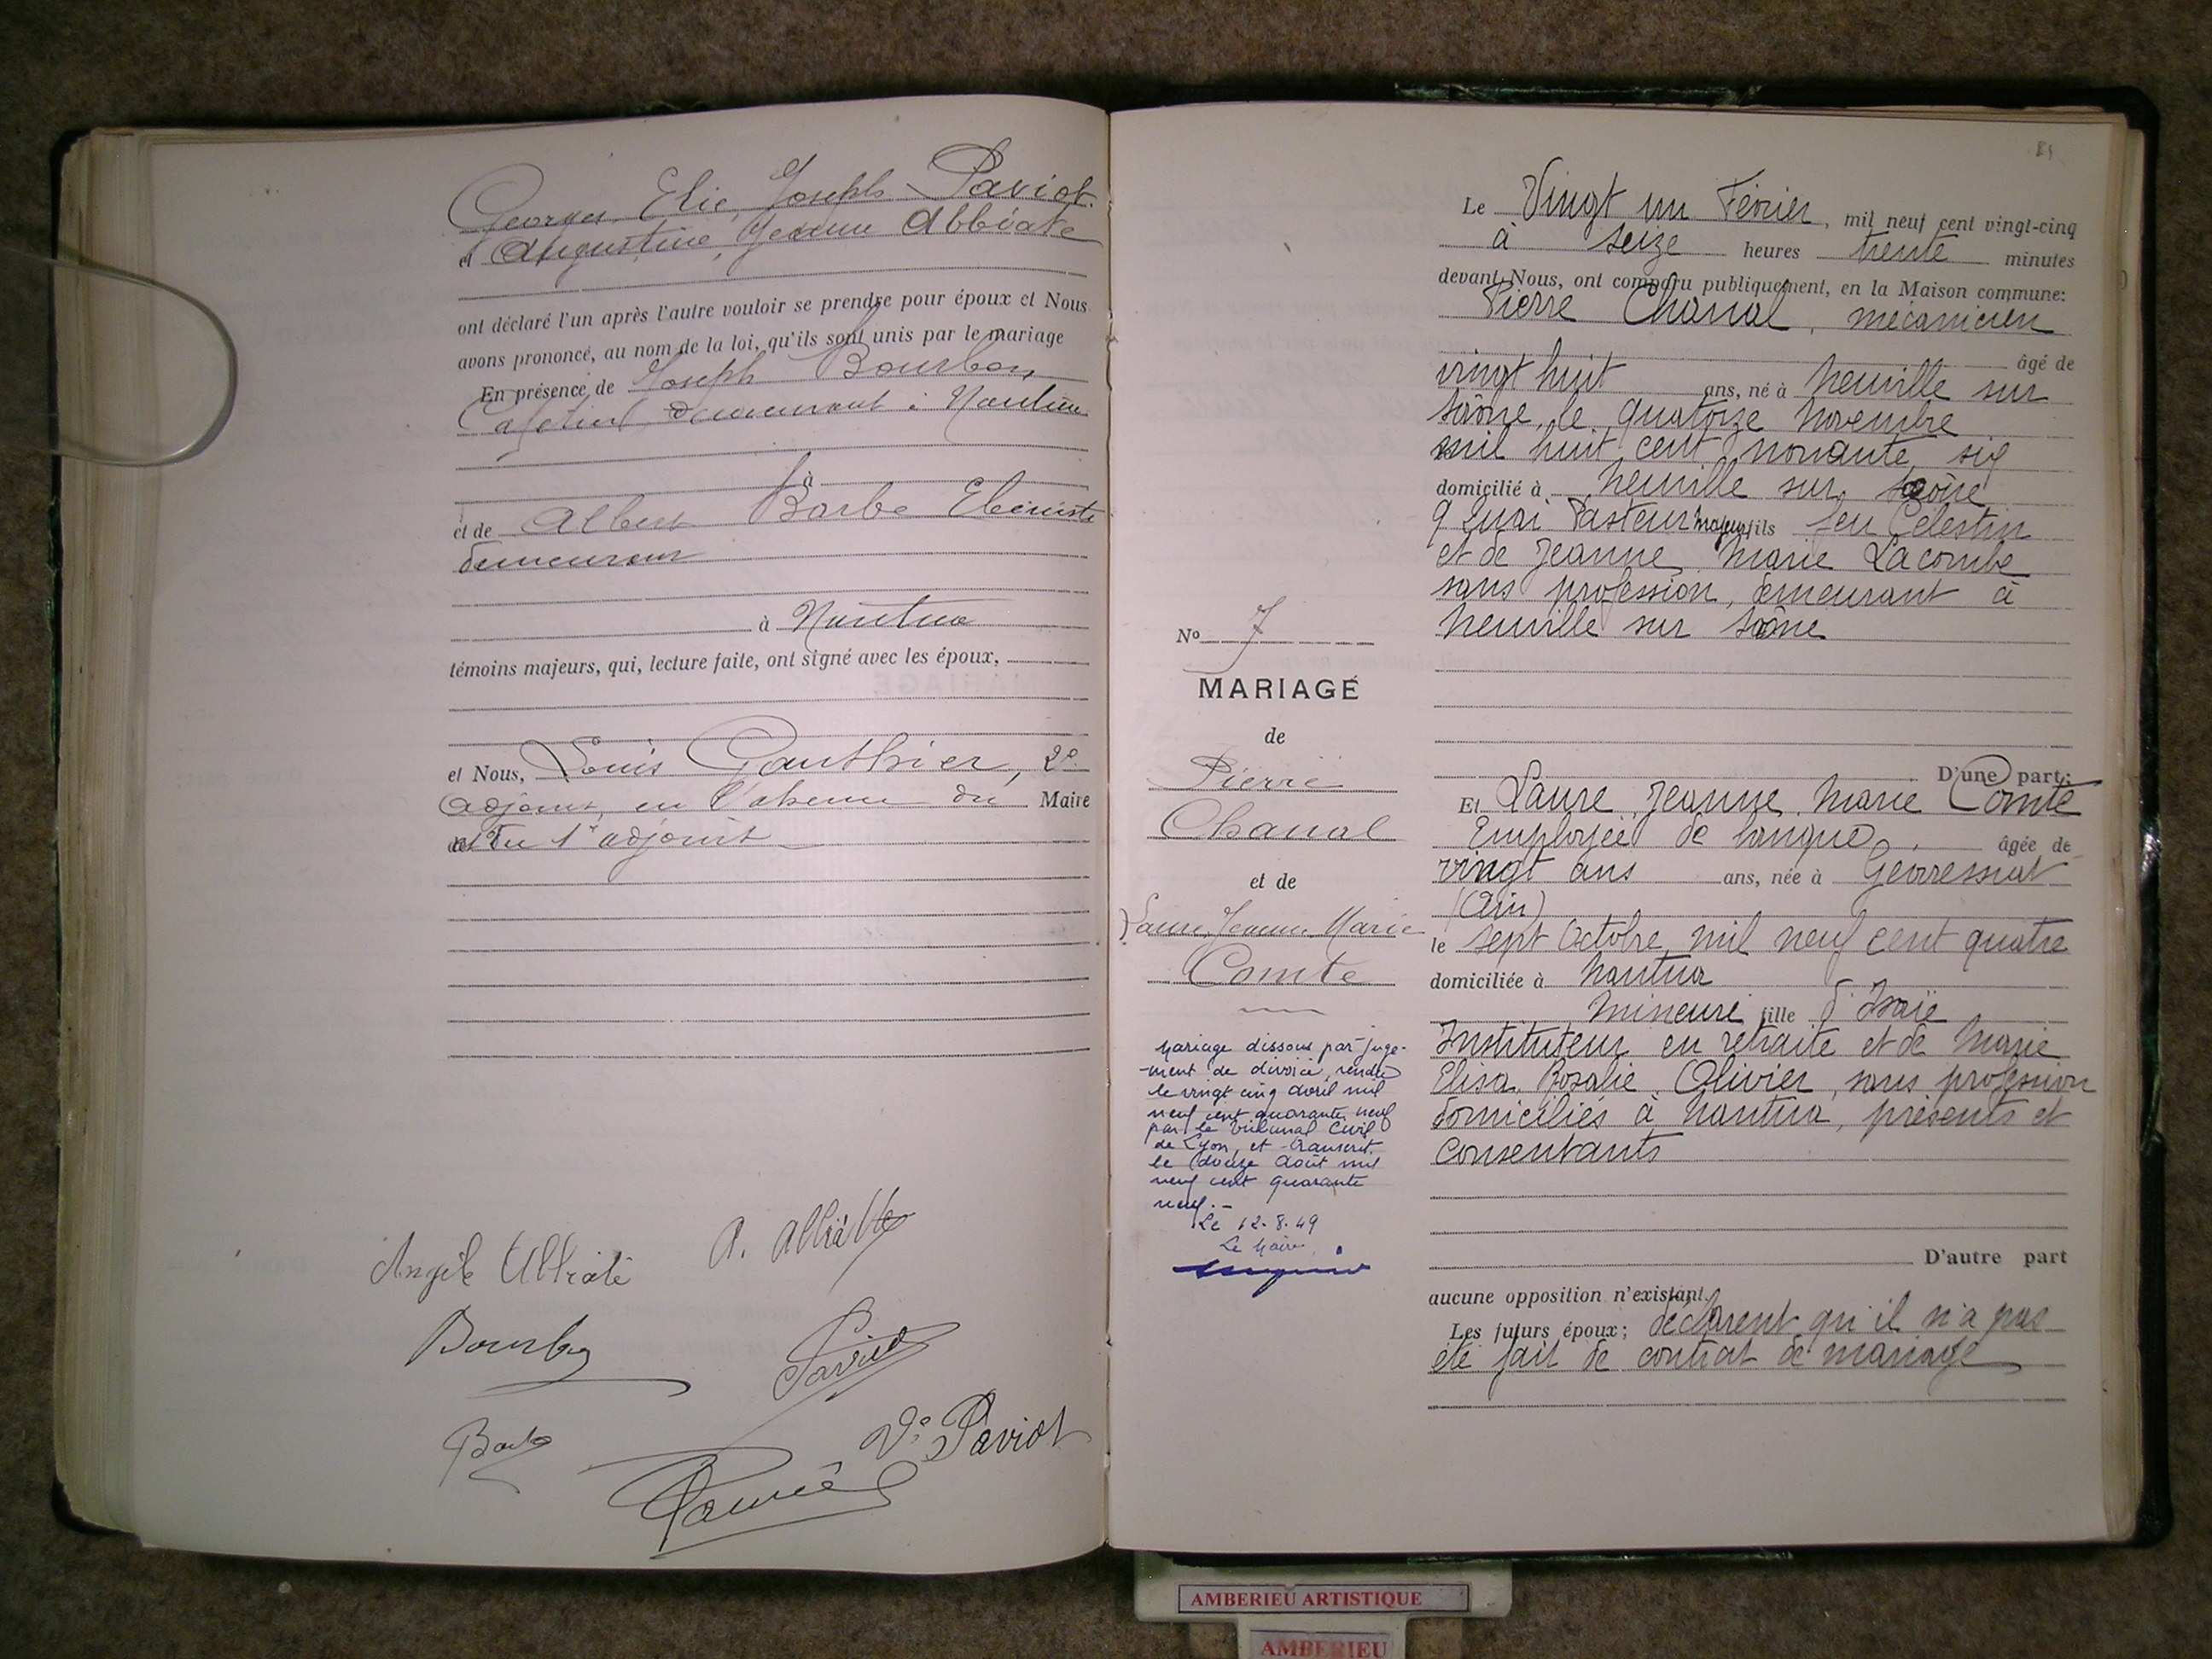 Georges, Elie, Joseph Paviot
et Augustine, Jeanne Abbéate
ont déclaré l'un après l'autre vouloir se prendre pour époux et Nous
avons prononcé, au nom de la loi, qu'ils sont unis par le mariage
En présence de Joseph Bourbon,
Cafetier, demeurant à Nantua
à
et de Albert Barbe Ebéniste
demeurant
à Nantua
témoins majeurs, qui, lecture faite, ont signé avec les époux,
et Nous, Louis Gauthier, 2e
adjoint, en l'absence du Maire
et du 1er adjoint
Bourbon
Paviot
Barbe
Ve Paviot
84
Le Vingt un Février, mil neuf cent vingt-cinq
à seize heures trente minutes
devant Nous, ont comparu publiquement, en la Maison commune:
Pierre Chanal, mécanicien
âgé de
vingt huit ans, né à Neuville sur
Saône, le quatorze Novembre
mil huit cent nonante six
domicilié à Neuville sur Saône
9 Quai Pasteur majeur, fils feu Célestin
et de Jeanne Marie Lacombe
sans profession, demeurant à
Neuville sur Saône
D'une part;
Et Laure, Jeanne, Marie Comte
Employée de banque, âgée de
vingt ans ans, née à Gevressiat
(Ain)
le sept Octobre mil neuf cent quatre
domiciliée à Nantua
mineure, fille d'Isaïe
Instituteur en retraite et de Marie
Elisa, Rosalie Olivier, sans profession
domiciliés à Nantua, présents et
consentants
D'autre part
aucune opposition n'existant.
Les futurs époux; déclarent qu'il n'a pas
été fait de contrat de mariage
No 7
MARIAGE
de
Pierre
Chanal
et de
Laure, Jeanne, Marie
Comte
Mariage dissous par juge-
-ment de divorce, rendu
le vingt cinq avril mil
neuf cent quarante neuf
par le Tribunal Civil
de Lyon, et transcrit
le douze Août mil
neuf cent quarante
neuf.-
Le 12-8-49
Le Maire,
AMBERIEU ARTISTIQUE
AMBERIEU